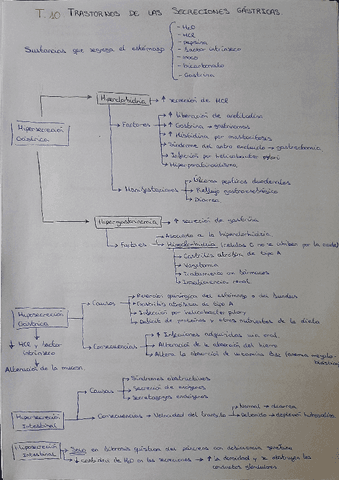 T. 10 TRASTORNOS DE LAS SECRECIONES GÁSTRICAS
Sustancias que segrega el estómago
- H2O
- HCl
- pepsina
- factor intrínseco
- moco
- bicarbonato
- Gastrina
Hipersecreción Gástrica
Hiperclorhidria → ↑ secreción de HCl
Factores
↑ liberación de acetilcolina
↑ Gastrina → gastrinomas
↑ Histamina por mastocitosis
Síndrome del antro excluido → gastrectomía
Infección por helicobacter pylori
Hiperparatiroidismo
Manifestaciones
Úlceras pépticas duodenales
Reflujo gastroesofágico
Diarrea
Hipergastrinemia → ↑ secreción de gastrina
Factores
Asociada a la hiperclorhidria
Hipoclorhidria (células G no se inhiben por la acidez)
Gastritis atrófica de tipo A
Vagotomía
Tratamiento
Insuficiencia renal
Hiposecreción Gástrica
↓ HCl, factor intrínseco
Alteración de la mucosa
Causas
Gastritis atrófica de tipo A
Infección por helicobacter pylori
Déficit de proteínas y otros nutrientes de la dieta
Consecuencias
↑ Infecciones adquiridas vía oral
Alteración de la absorción del hierro
Altera la absorción de vitamina B12 (anemia megaloblástica)
Hipersecreción Intestinal
Causas
Síndromes obstructivos
Secreción de
Secretagogos exógenos
Consecuencias → Velocidad del tránsito
Normal → diarrea
Hiposecreción Intestinal
en fibrosis quística del páncreas con
↓ cantidad de H2O en las secreciones → ↑ la densidad y se obstruyen los conductos glandulares